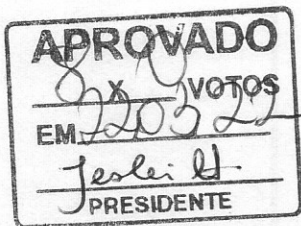 APROVADO
8 X VOTOS
EM 22 03 22
PRESIDENTE